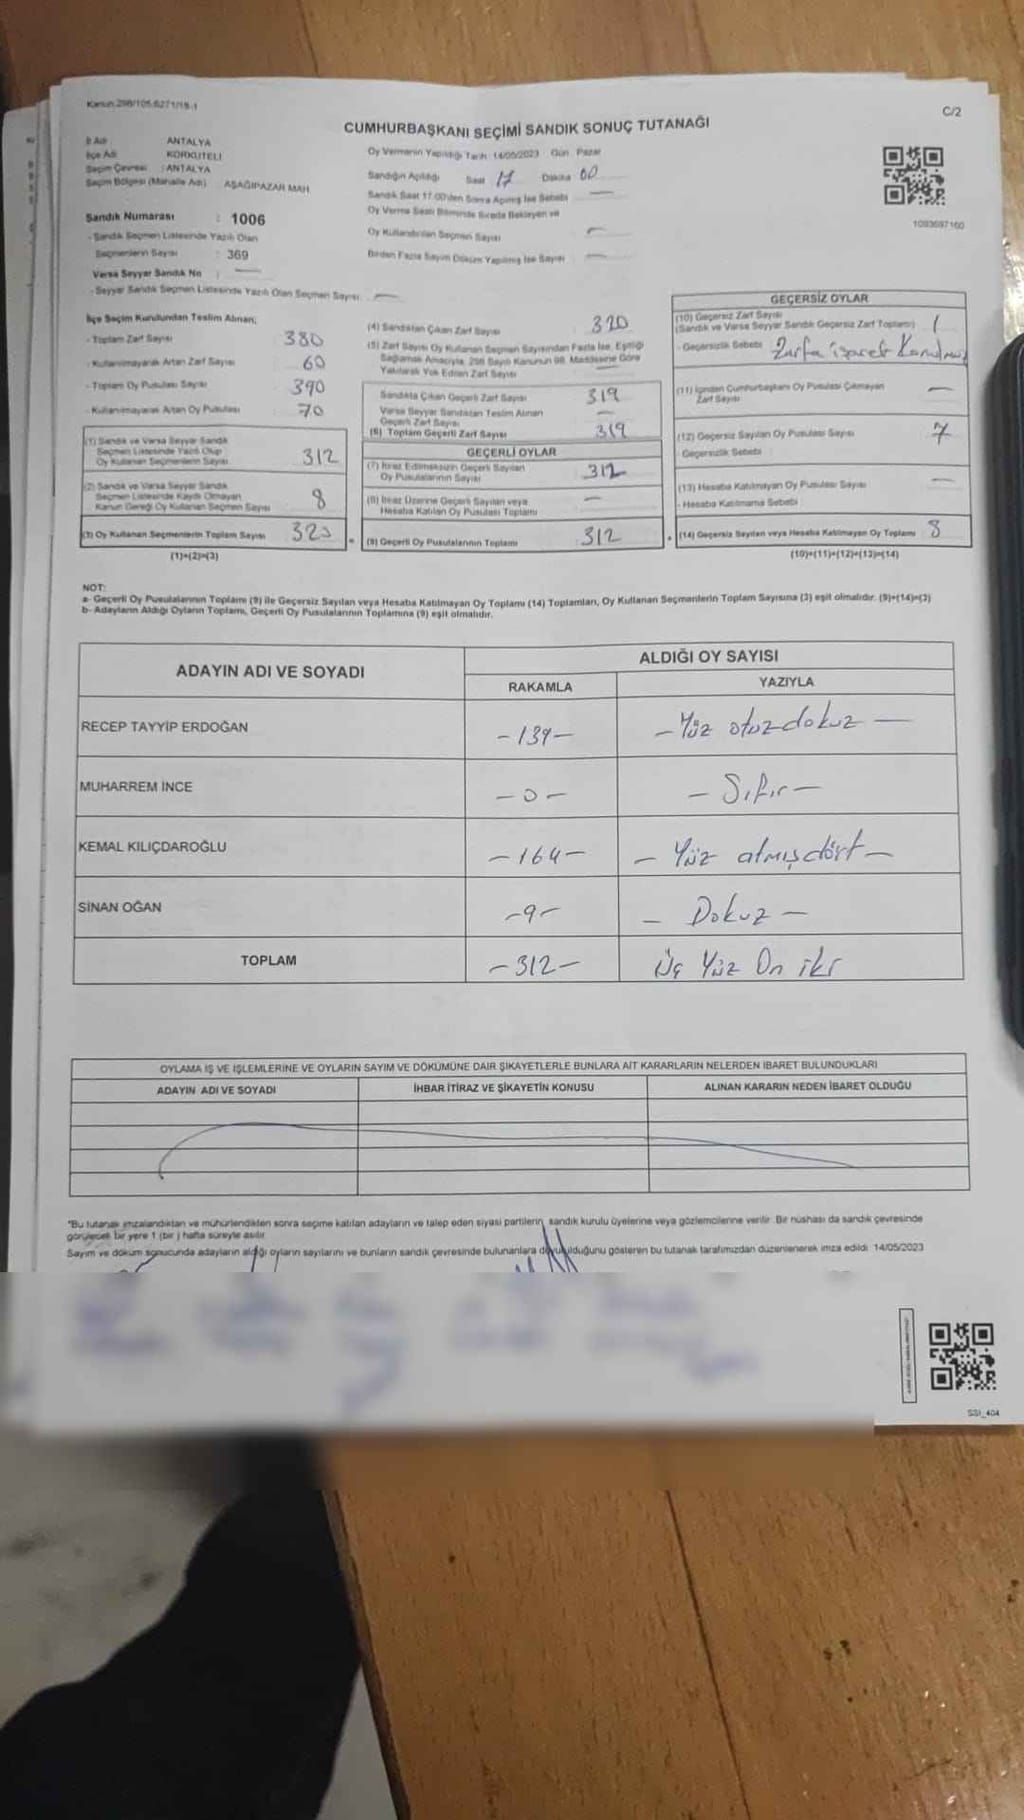 Kanun:298/105,6271/19-1
C/2
CUMHURBAŞKANI SEÇİMİ SANDIK SONUÇ TUTANAĞI
İl Adı ANTALYA
İlçe Adı KORKUTELİ
Seçim Çevresi : ANTALYA
Seçim Bölgesi (Mahalle Adı) : AŞAĞIPAZAR MAH.
Sandık Numarası : 1006
- Sandık Seçmen Listesinde Yazılı Olan
Seçmenlerin Sayısı : 369
Varsa Seyyar Sandık No : —
- Seyyar Sandık Seçmen Listesinde Yazılı Olan Seçmen Sayısı: —
Oy Vermenin Yapıldığı Tarih: 14/05/2023 Gün: Pazar
Sandığın Açıldığı Saat 17 Dakika 00
Sandık Saat 17.00'den Sonra Açılmış İse Sebebi —
Oy Verme Saati Bitiminde Sırada Bekleyen ve
Oy Kullandırılan Seçmen Sayısı —
Birden Fazla Sayım Döküm Yapılmış İse Sayısı —
1093697160
İlçe Seçim Kurulundan Teslim Alınan;
- Toplam Zarf Sayısı 380
- Kullanılmayarak Artan Zarf Sayısı 60
- Toplam Oy Pusulası Sayısı 390
- Kullanılmayarak Artan Oy Pusulası 70
(1) Sandık ve Varsa Seyyar Sandık
Seçmen Listesinde Yazılı Olup
Oy Kullanan Seçmenlerin Sayısı 312
(2) Sandık ve Varsa Seyyar Sandık
Seçmen Listesinde Kaydı Olmayan
Kanun Gereği Oy Kullanan Seçmen Sayısı 8
(3) Oy Kullanan Seçmenlerin Toplam Sayısı 320
(1)+(2)=(3)
(4) Sandıktan Çıkan Zarf Sayısı 320
(5) Zarf Sayısı Oy Kullanan Seçmen Sayısından Fazla İse, Eşitliği
Sağlamak Amacıyla, 298 Sayılı Kanunun 98. Maddesine Göre
Yakılarak Yok Edilen Zarf Sayısı —
Sandıkta Çıkan Geçerli Zarf Sayısı 319
Varsa Seyyar Sandıktan Teslim Alınan
Geçerli Zarf Sayısı —
(6) Toplam Geçerli Zarf Sayısı 319
GEÇERLİ OYLAR
(7) İtiraz Edilmeksizin Geçerli Sayılan
Oy Pusulalarının Sayısı 312
(8) İtiraz Üzerine Geçerli Sayılan veya
Hesaba Katılan Oy Pusulası Toplamı —
(9) Geçerli Oy Pusulalarının Toplamı 312
GEÇERSİZ OYLAR
(10) Geçersiz Zarf Sayısı
(Sandık ve Varsa Seyyar Sandık Geçersiz Zarf Toplamı) 1
- Geçersizlik Sebebi Zarfa işaret Konulmuş
(11) İçinden Cumhurbaşkanı Oy Pusulası Çıkmayan
Zarf Sayısı —
(12) Geçersiz Sayılan Oy Pusulası Sayısı 7
- Geçersizlik Sebebi
(13) Hesaba Katılmayan Oy Pusulası Sayısı —
- Hesaba Katılmama Sebebi
(14) Geçersiz Sayılan veya Hesaba Katılmayan Oy Toplamı 8
(10)+(11)+(12)+(13)=(14)
NOT:
a- Geçerli Oy Pusulalarının Toplamı (9) ile Geçersiz Sayılan veya Hesaba Katılmayan Oy Toplamı (14) Toplamları, Oy Kullanan Seçmenlerin Toplam Sayısına (3) eşit olmalıdır. (9)+(14)=(3)
b- Adayların Aldığı Oyların Toplamı, Geçerli Oy Pusulalarının Toplamına (9) eşit olmalıdır.
ADAYIN ADI VE SOYADI
ALDIĞI OY SAYISI
RAKAMLA YAZIYLA
RECEP TAYYİP ERDOĞAN -139- - Yüz otuzdokuz -
MUHARREM İNCE -0- - Sıfır -
KEMAL KILIÇDAROĞLU -164- - Yüz atmışdört -
SİNAN OĞAN -9- - Dokuz -
TOPLAM -312- Üç Yüz On iki
OYLAMA İŞ VE İŞLEMLERİNE VE OYLARIN SAYIM VE DÖKÜMÜNE DAİR ŞİKAYETLERLE BUNLARA AİT KARARLARIN NELERDEN İBARET BULUNDUKLARI
ADAYIN ADI VE SOYADI İHBAR İTİRAZ VE ŞİKAYETİN KONUSU ALINAN KARARIN NEDEN İBARET OLDUĞU
*Bu tutanak imzalandıktan ve mühürlendikten sonra seçime katılan adayların ve talep eden siyasi partilerin sandık kurulu üyelerine veya gözlemcilerine verilir. Bir nüshası da sandık çevresinde
görülecek bir yere 1 (bir) hafta süreyle asılır.
Sayım ve döküm sonucunda adayların aldığı oyların sayılarını ve bunların sandık çevresinde bulunanlara duyurulduğunu gösteren bu tutanak tarafımızdan düzenlenerek imza edildi. 14/05/2023
SSI_404